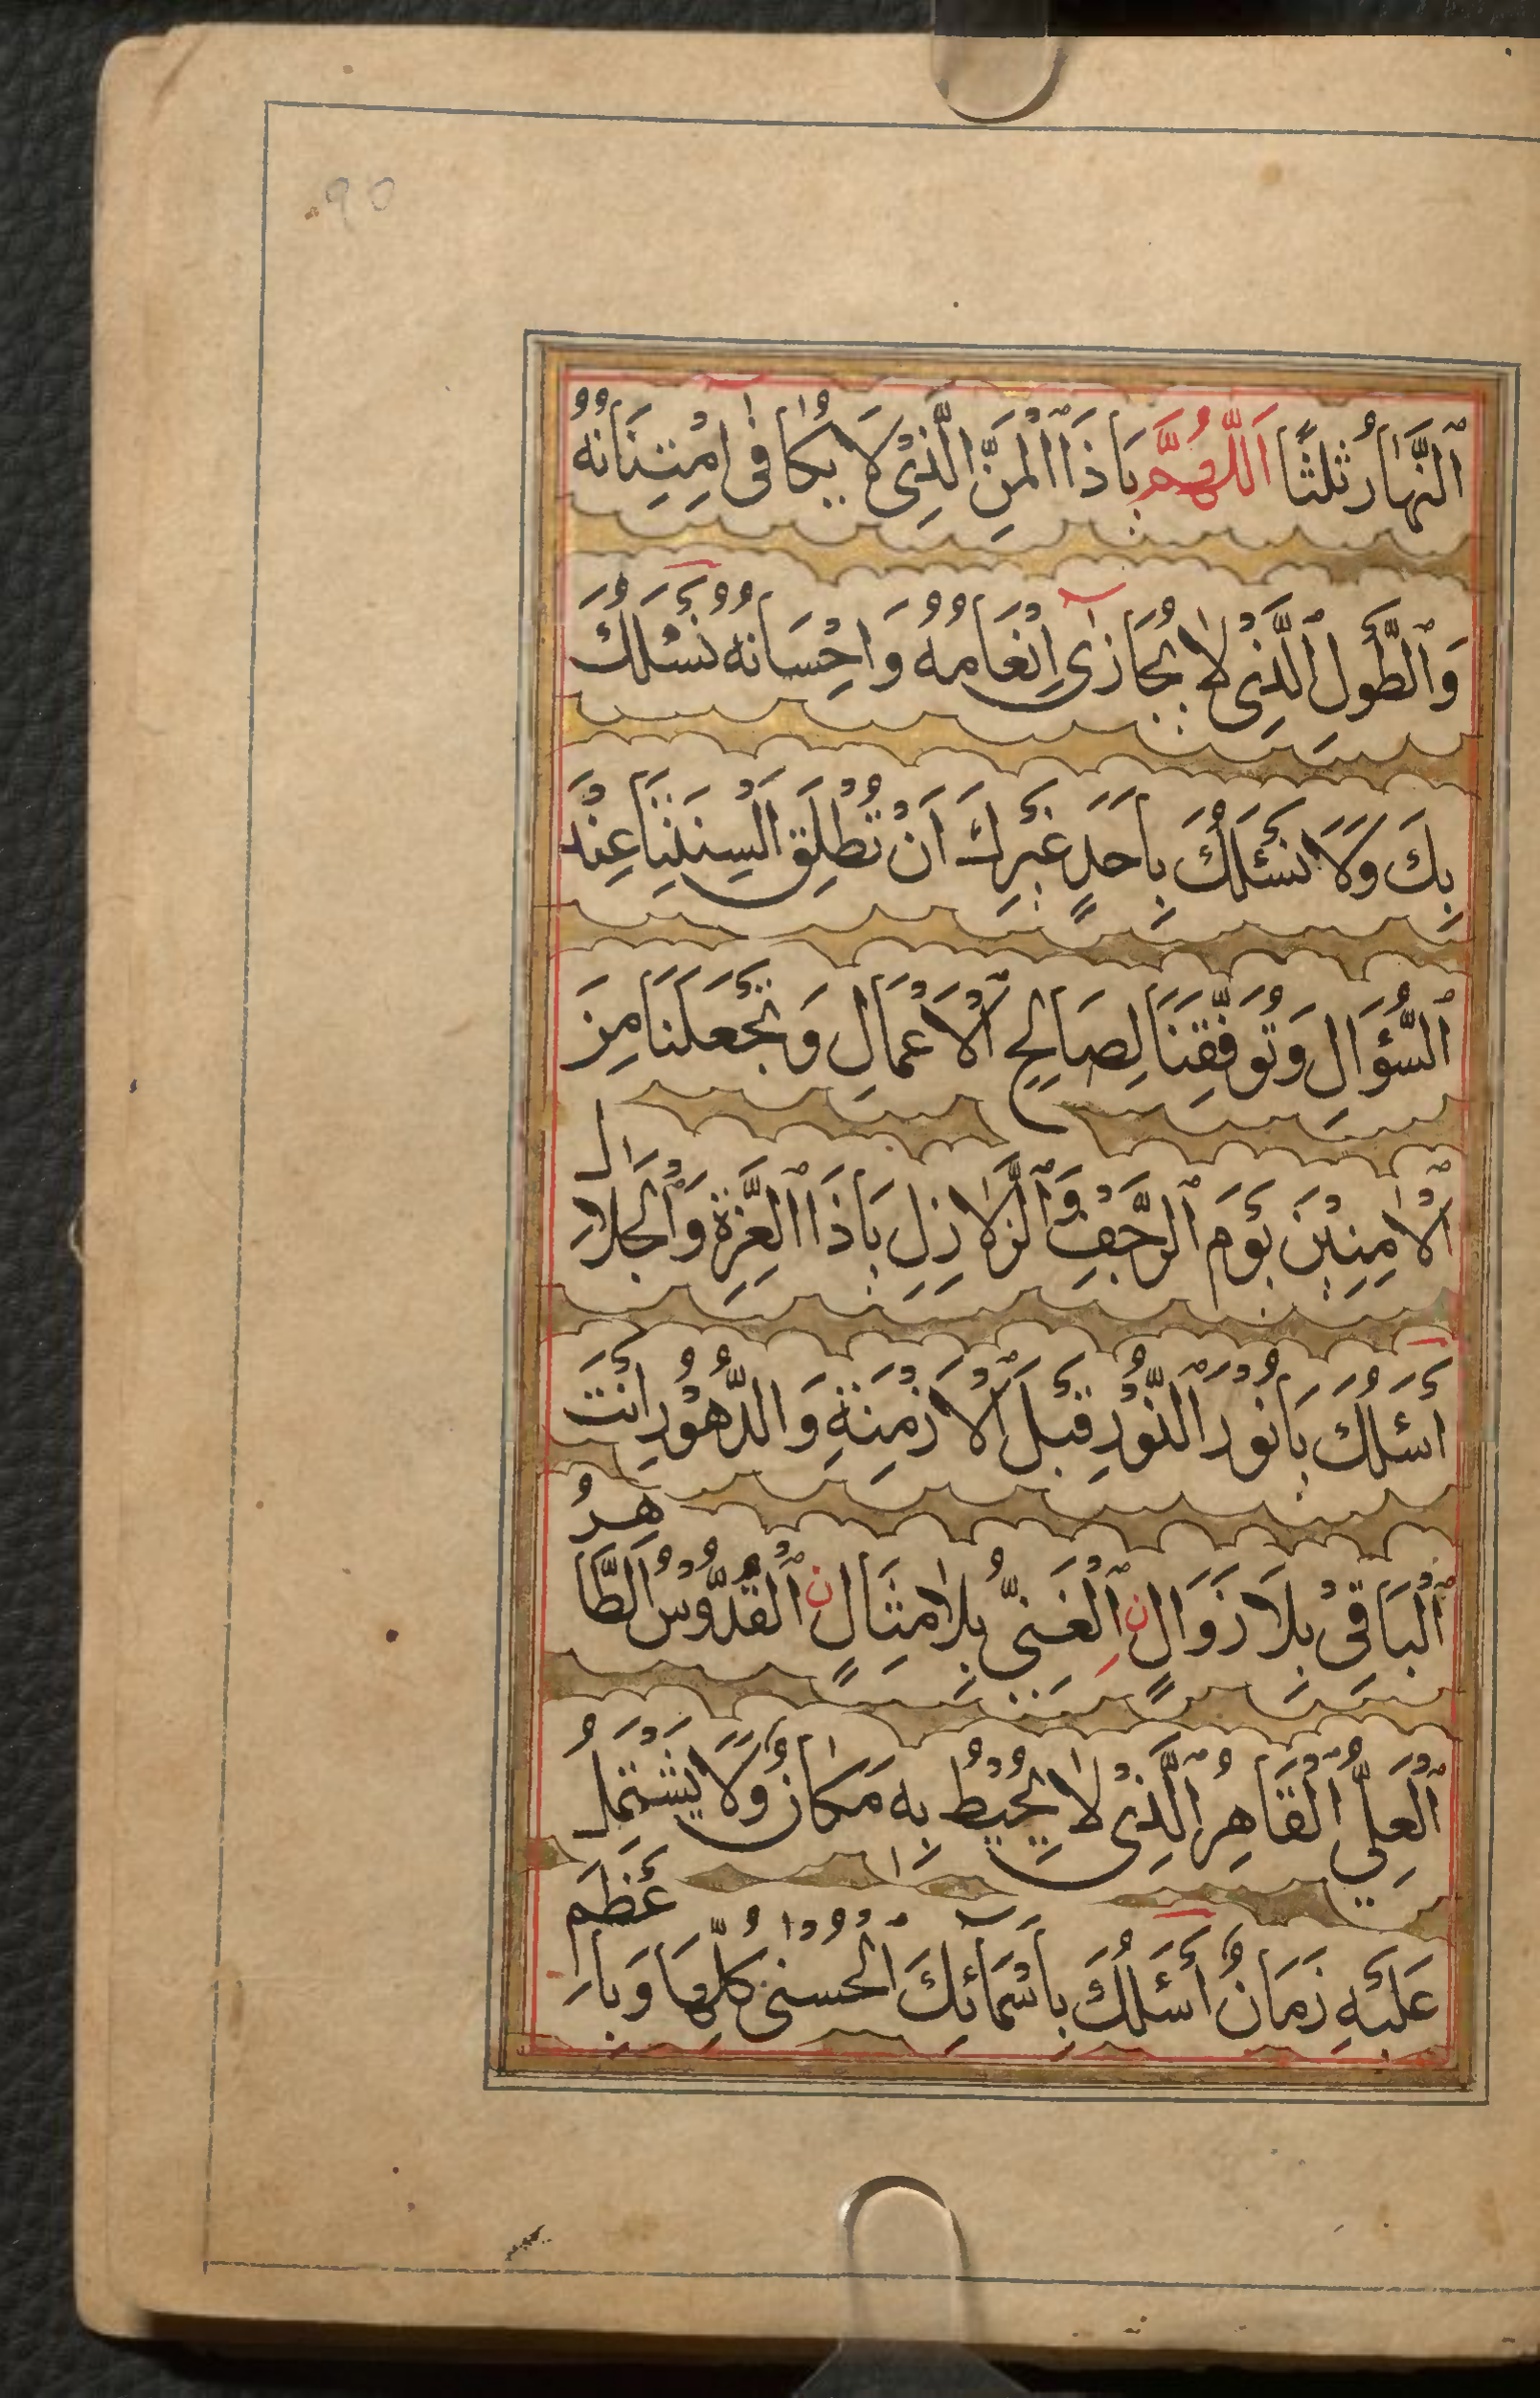 90
اَلنَّهَارُ ثَلٰثًا اَللّٰهُمَّ يَا ذَا الْمَنِّ الَّذِىْ لَا يُكَافٰى اِمْتِنَانُهُ
وَالطَّوْلِ الَّذِىْ لَا يُجَازٰى اِنْعَامُهُ وَاِحْسَانُهُ نَسْئَلُكَ
بِكَ وَلَا نَسْئَلُكَ بِاَحَدٍ غَيْرِكَ اَنْ تُطْلِقَ اَلْسِنَتِنَا عِنْدَ
السُّؤَالِ وَتُوَفِّقَنَا لِصَالِحِ الْاَعْمَالِ وَتَجْعَلَنَا مِنَ
الْاٰمِنِيْنَ يَوْمَ الرَّجْفِ وَالزَّلَازِلِ يَا ذَا الْعِزَّةِ وَالْجَلَالِ
اَسْئَلُكَ يَا نُوْرَ النُّوْرِ قَبْلَ الْاَزْمِنَةِ وَالدُّهُوْرِ اَنْتَ
الْبَاقِىْ بِلَا زَوَالٍ نِ الْغَنِىُّ بِلَا مِثَالٍ نِ الْقُدُّوْسُ الطَّاهِرُ
الْعَلِىُّ الْقَاهِرُ الَّذِىْ لَا يُحِيْطُ بِهٖ مَكَانٌ وَلَا يَشْتَمِلُ
عَلَيْهِ زَمَانٌ اَسْئَلُكَ بِاَسْمَائِكَ الْحُسْنٰى كُلِّهَا وَبِاَعْظَمِ